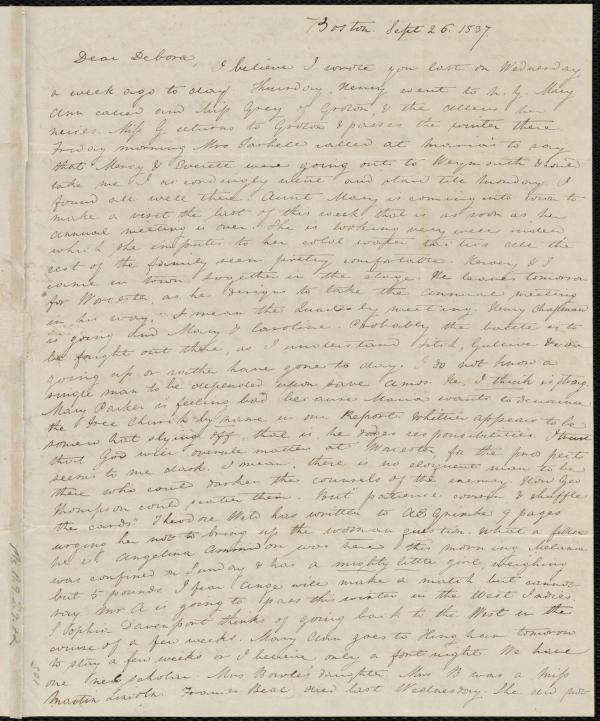 Boston. Sept 26. 1837.
Dear Debora,
I believe I wrote you last on Wednesday
a week ago to day. Thursday, Henry went to N. Y. Mary
Ann called and Miss Grey of Groton, & the Allens her
neices. Miss G returns to Groton & passes the winter there
Friday morning Mrs Tarbell called at Maria's to say
that Mercy & Everett were going out to Weymouth & would
take me. I accordingly went and staid till Monday. I
found all well there. Aunt Mary is coming into town to
make a visit the last of this week, that is as soon as her
annual meeting is over. She is looking very well indeed,
which she imputes to her cold water, tho' is all the
rest of the family seem pretty comfortable. Hervey & I
came in town together in the stage. He leaves tomorrow
for Worcester, as he designs to take the annual meeting
in his way. I mean the Quarterly meeting. Henry Chapman
is going and Mary & Caroline. Probably the battle is to
be fought out there, as I understand Fitch, Gulliver &
going up or rather have gone to day. I do not know a
single man to be depended upon save Amos. He, I think is strong.
Mary Parker is feeling bad because Maria wants to denounce
the Free Church by name in our Report. Whittier appears to be
somewhat slying off, that is, he dodges responsibilities. I trust
that God will overrule matters at Worcester, for the prospects
seems to me dark. I mean, there is no eloquent man to be
there who could darken the counsels of the enemy. How Geo
Thompson could scatter them. But "patience cousin & shuffle
the cards." Theodore Weld has written to A E Grimke 9 pages
urging her not to bring up the woman question. What a fellow
he is! Angelina Ammidon was here this morning. Melania
was confined on Sunday & has a mighty little girl, weighing
but 5 pounds. I fear Ange will make a match but cannot
say. Mr A is going to pass this winter in the West Indies.
Sophia Davenport thinks of going back to the West in the
course of a few weeks. Mary Ann goes to Hingham tomorrow
to stay a few weeks or I believe only a fortnight. We have
one new scholar. Mrs Bowle's daughter. Mrs B was a Miss
Martin Lincoln. Frances Beal died last Wednesday. She did not
Ms.A.9.2.9.62